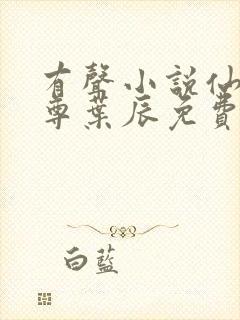 有聲小說仙
尊葉辰免費
白藍